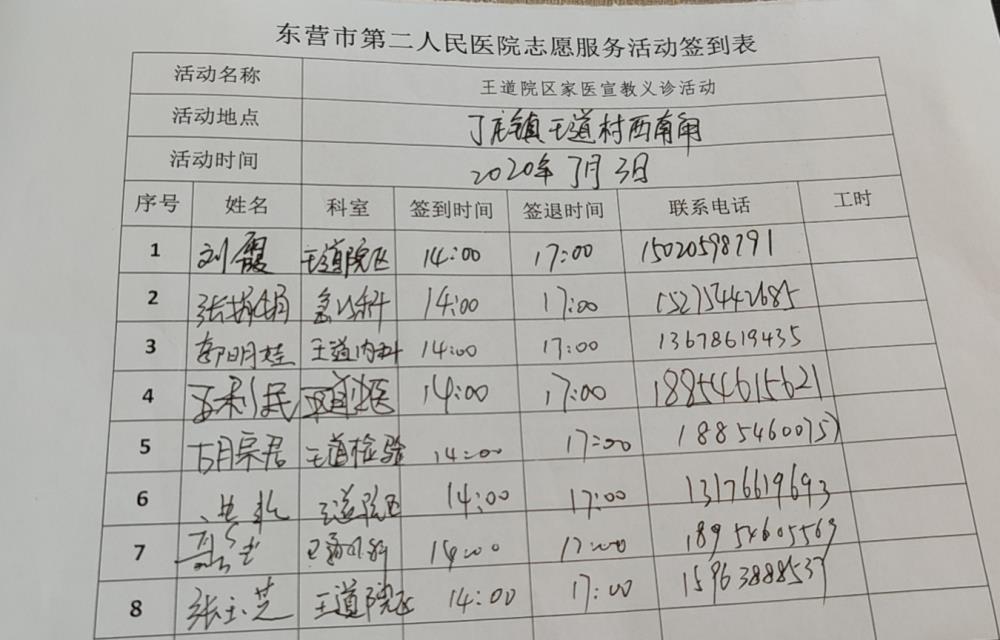 东营市第二人民医院志愿服务活动签到表
活动名称 王道院区家医宣教义诊活动
活动地点 丁庄镇王道村西南角
活动时间 2020年7月3日
序号 姓名 科室 签到时间 签退时间 联系电话 工时
1 刘霞 王道院区 14:00 17:00 15020598791
2 张娟娟 急诊科 14:00 17:00 15275442685
3 郭明娃 王道内科 14:00 17:00 13678619435
4 利民 14:00 17:00 18854615621
5 胡宗君 王道检验 14:00 17:00 18854600757
6 王道院区 14:00 17:00 13176619693
7 14:00 17:00 18954605569
8 张玉芝 王道院区 14:00 17:00 15963888537